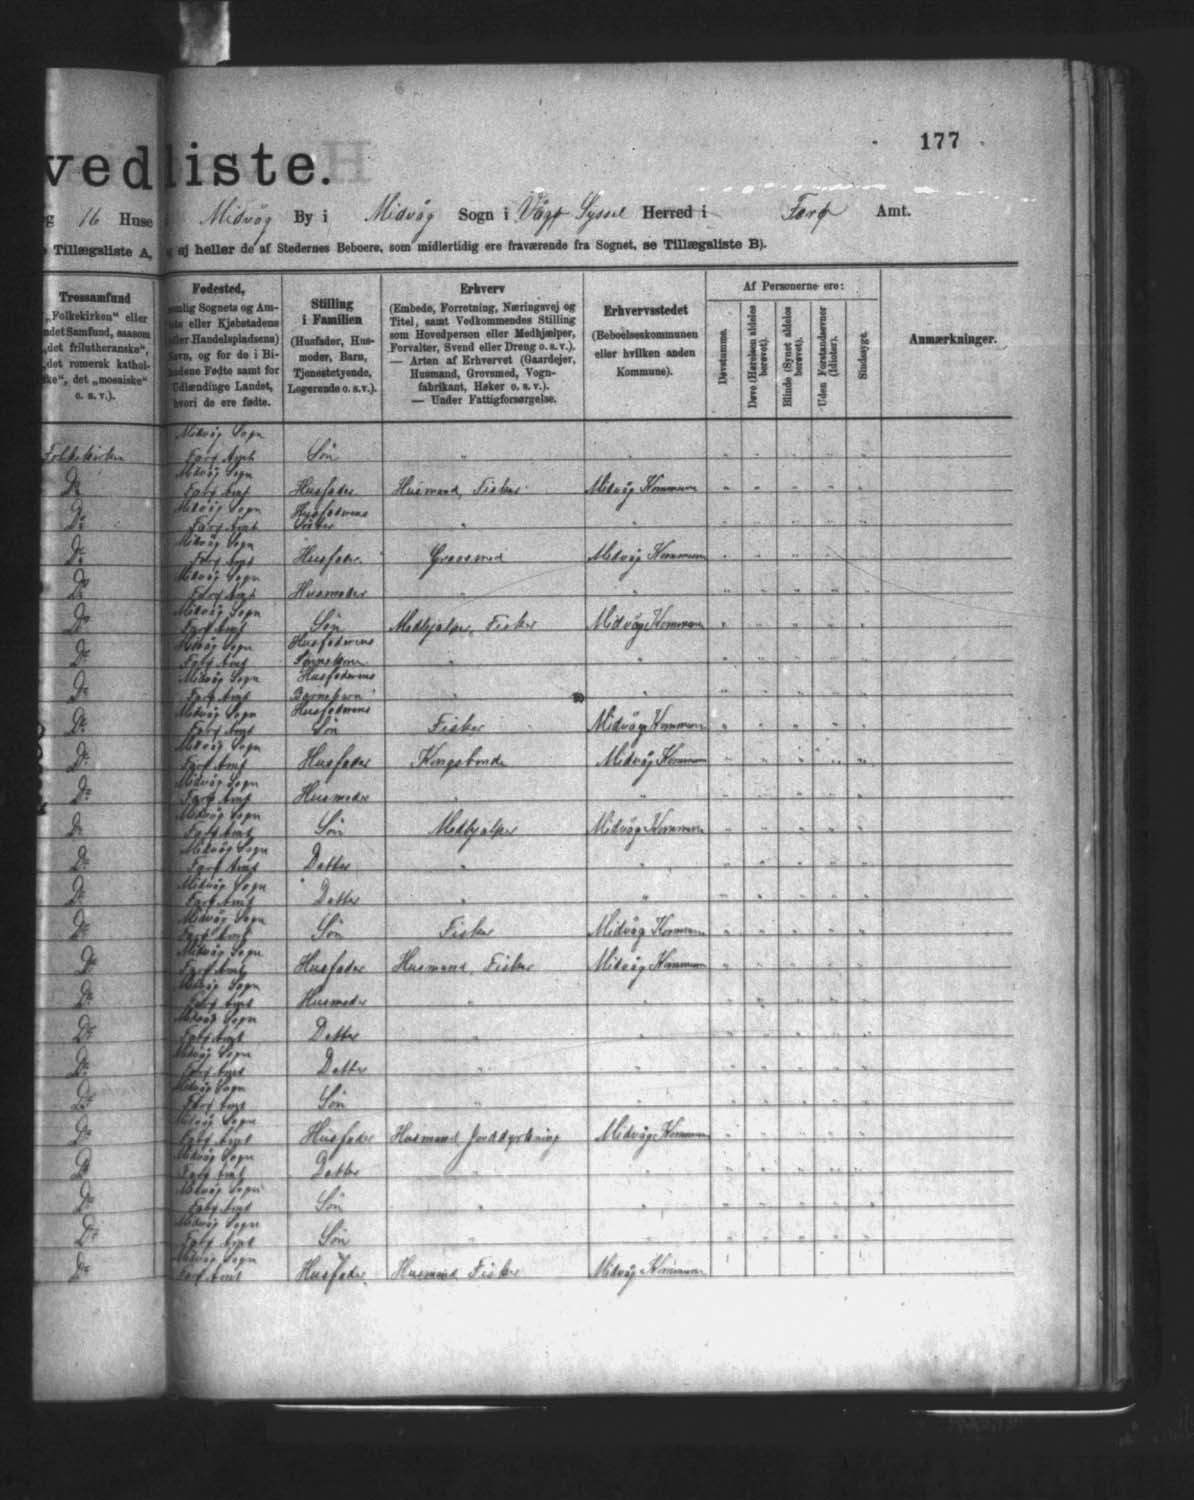 177
vedliste.
g 16 Huse i Midvåg By i Midvåg Sogn i Vågø Syssel Herred i Færø Amt.
Tillægsliste A, ej heller de af Stedernes Beboere, som midlertidig ere fraværende fra Sognet, se Tillægsliste B).
Trossamfund
„Folkekirken“ eller
ndet Samfund, saasom
„det frilutheranske“,
„det romersk kathol-
ke“, det „mosaiske“
o. s. v.).
Fødested,
mlig Sognets og Am-
ts eller Kjøbstadens
eller Handelspladsens)
Navn, og for de i Bi-
ndene Fødte samt for
Udlændinge Landet,
hvori de ere fødte.
Stilling
i Familien
(Husfader, Hus-
moder, Barn,
Tjenestetyende,
Logerende o. s. v.).
Erhverv
(Embede, Forretning, Næringsvej og
Titel, samt Vedkommendes Stilling
som Hovedperson eller Medhjælper,
Forvalter, Svend eller Dreng o. s. v.).
— Arten af Erhvervet (Gaardejer,
Husmand, Grovsmed, Vogn-
fabrikant, Høker o. s. v.).
— Under Fattigforsørgelse.
Erhvervsstedet
(Beboelseskommunen
eller hvilken anden
Kommune).
Af Personerne ere:
Døvstumme.
Døve (Hørelsen aldeles
berøvet).
Blinde (Synet aldeles
berøvet).
Uden Forstandsevner
(Idioter).
Sindssyge.
Anmærkninger.
Midvåg Sogn
Folkekirken Færø Amt Søn " " " " " " "
Midvåg Sogn
Do Færø Amt Husfader Husmand, Fisker Midvåg Kommune " " " " "
Midvåg Sogn Husfaderens
Do Færø Amt Søster " " " " " " "
Midvåg Sogn
Do Færø Amt Husfader Grovsmed Midvåg Kommune " " " " "
Midvåg Sogn
Do Færø Amt Husmoder " " " " " " "
Midvåg Sogn
Do Færø Amt Søn Medhjælper, Fisker Midvåg Kommune " " " " "
Midvåg Sogn Husfaderens
Do Færø Amt Sønnekone " " " " " " "
Midvåg Sogn Husfaderens
Do Færø Amt Barnebarn " " " " " " "
Midvåg Sogn Husfaderens
Do Færø Amt Søn Fisker Midvåg Kommune " " " " "
Midvåg Sogn
Do Færø Amt Husfader Kongsbonde Midvåg Kommune " " " " "
Midvåg Sogn
Do Færø Amt Husmoder " " " " " " "
Midvåg Sogn
Do Færø Amt Søn Medhjælper Midvåg Kommune " " " " "
Midvåg Sogn
Do Færø Amt Datter " " " " " " "
Midvåg Sogn
Do Færø Amt Datter " " " " " " "
Midvåg Sogn
Do Færø Amt Søn Fisker Midvåg Kommune " " " " "
Midvåg Sogn
Do Færø Amt Husfader Husmand, Fisker Midvåg Kommune " " " " "
Midvåg Sogn
Do Færø Amt Husmoder " " " " " " "
Midvåg Sogn
Do Færø Amt Datter " " " " " " "
Midvåg Sogn
Do Færø Amt Datter " " " " " " "
Midvåg Sogn
Do Færø Amt Søn " " " " " " "
Midvåg Sogn
Do Færø Amt Husfader Husmand Jorddyrkning Midvåg Kommune " " " " "
Midvåg Sogn
Do Færø Amt Datter " " " " " " "
Midvåg Sogn
Do Færø Amt Søn " " " " " " "
Midvåg Sogn
Do Færø Amt Søn " " " " " " "
Midvåg Sogn
Do Færø Amt Husfader Husmand Fisker Midvåg Kommune " " " " "